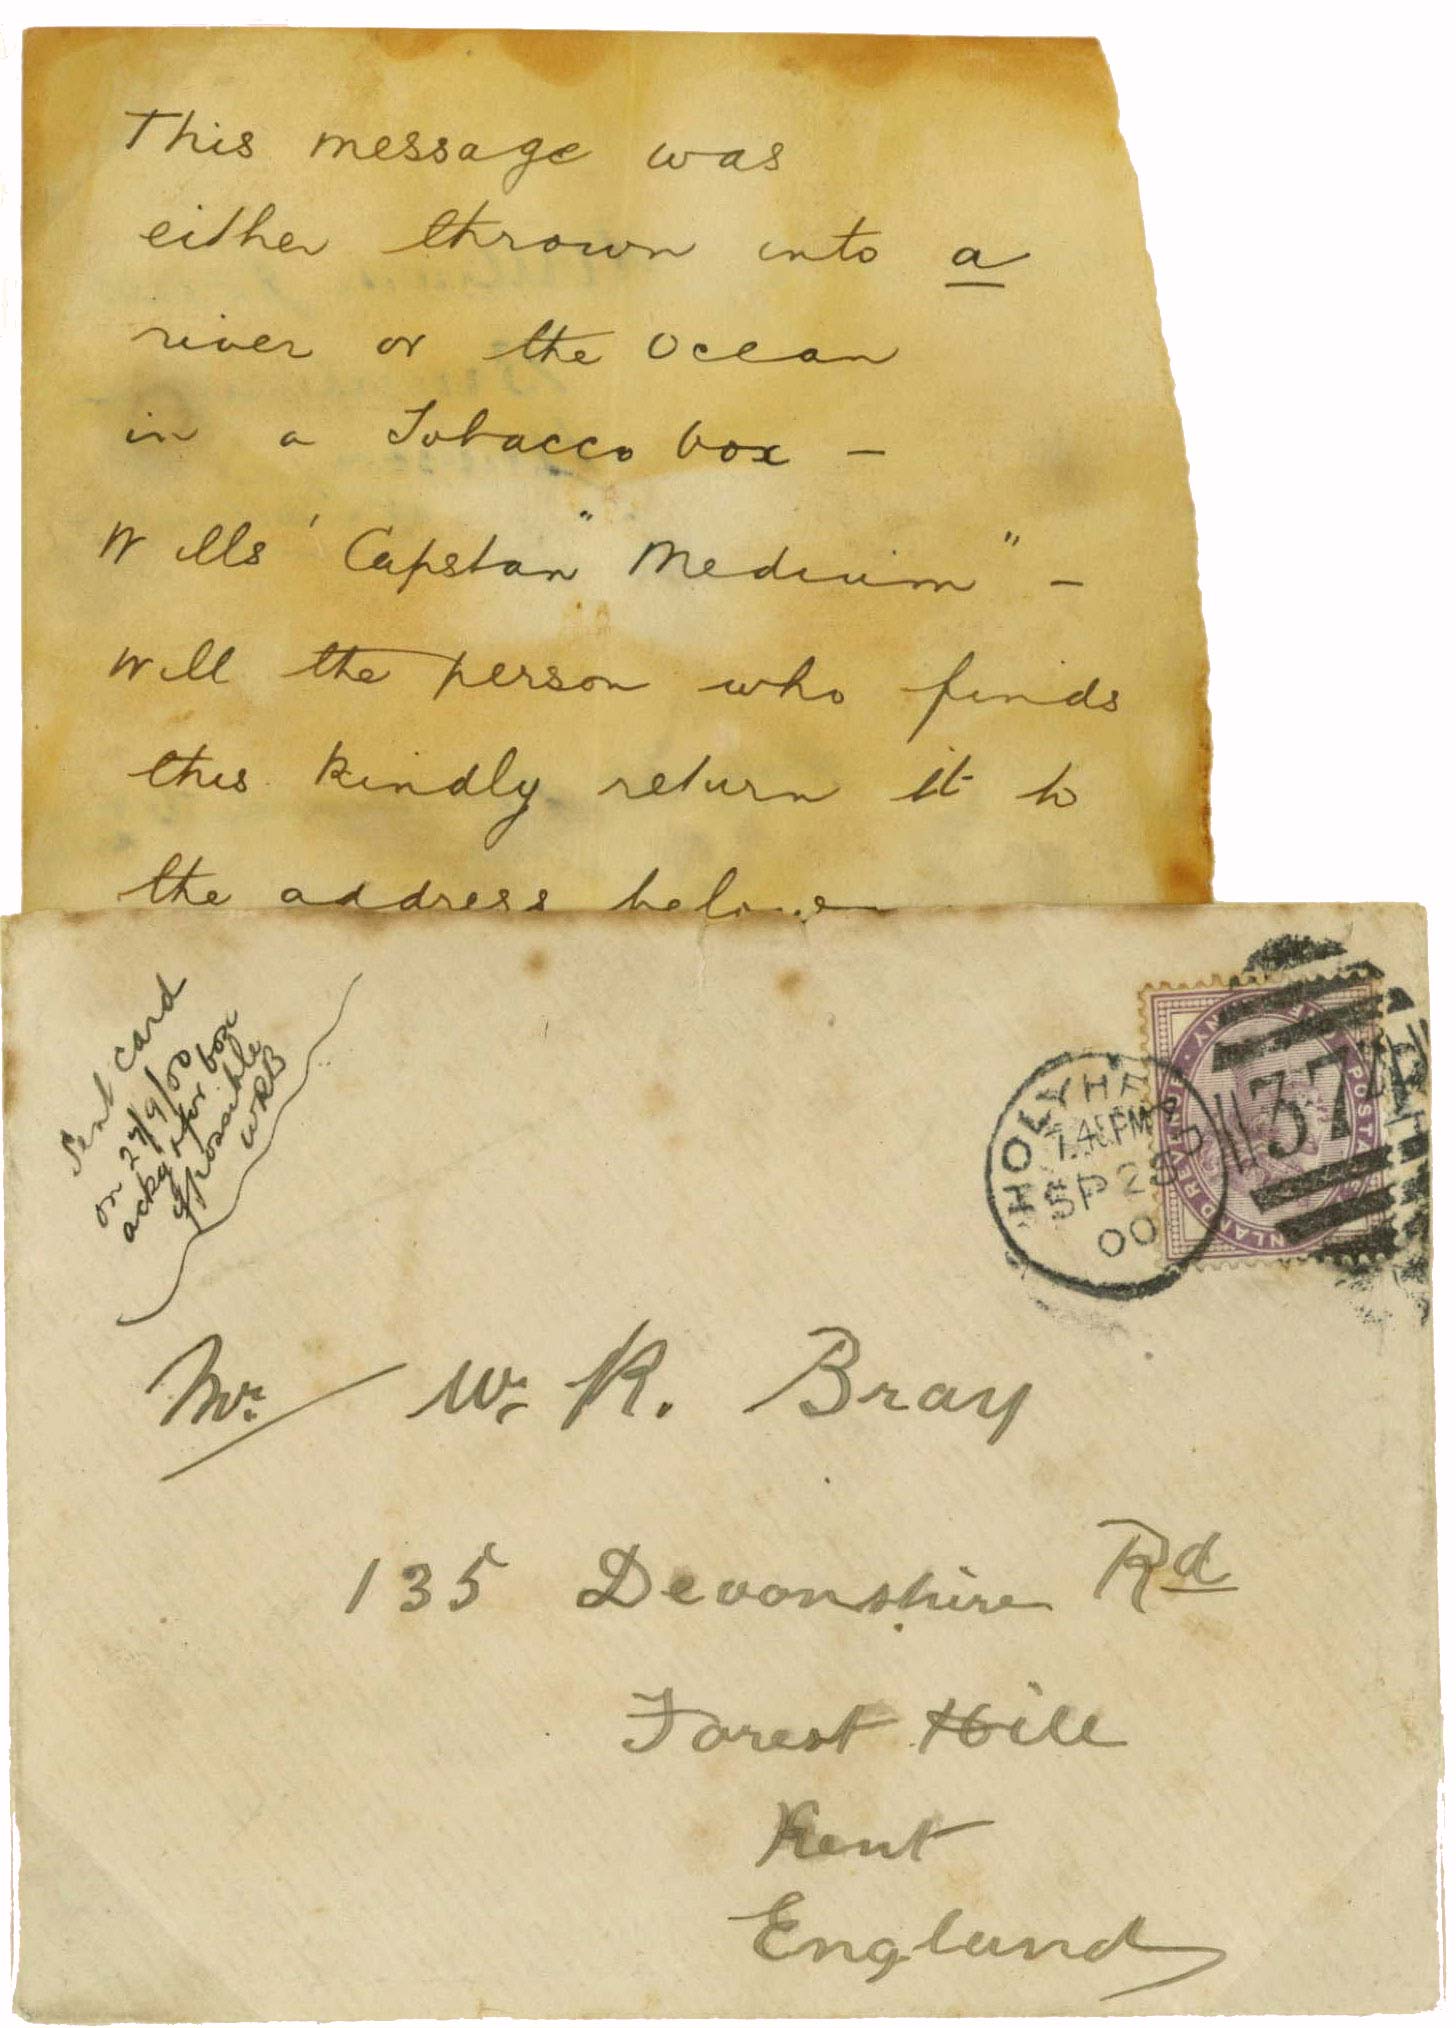 This message was
either thrown into a
river or the Ocean
in a Tobacco box –
Wills' "Capstan" Medium" –
Will the person who finds
this kindly return it to
the address below
Sent card
on 27/9/00
ackg & for box
if possible
WRB
HOLYHEAD
7.45 PM
SP 28
00
374
POSTAGE
INLAND REVENUE
Mr. W. R. Bray
135 Devonshire Rd
Forest Hill
Kent
England